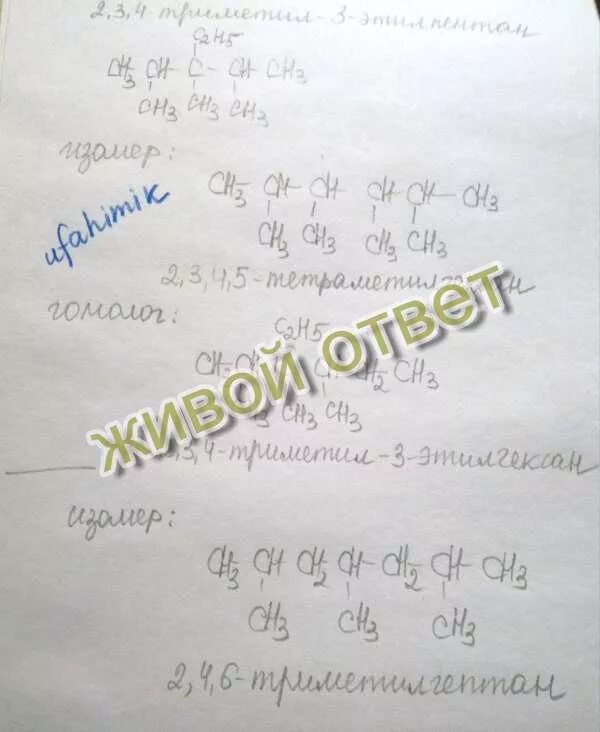 2,3,4-триметил-3-этилпентан
C2H5
CH3 CH-C-CH CH3
CH3 CH3 CH3
изомер:
CH3 CH-CH CH-CH-CH3
ufahimik
CH3 CH3 CH3 CH3
2,3,4,5-тетраметил
гомолог:
C2H5
CH2 CH3
CH3 CH3
ЖИВОЙ ОТВЕТ
3,4-триметил-3-этилгексан
изомер:
CH3 CH CH2 CH-CH2 CH-CH3
CH3 CH3 CH3
2,4,6-триметилгептан